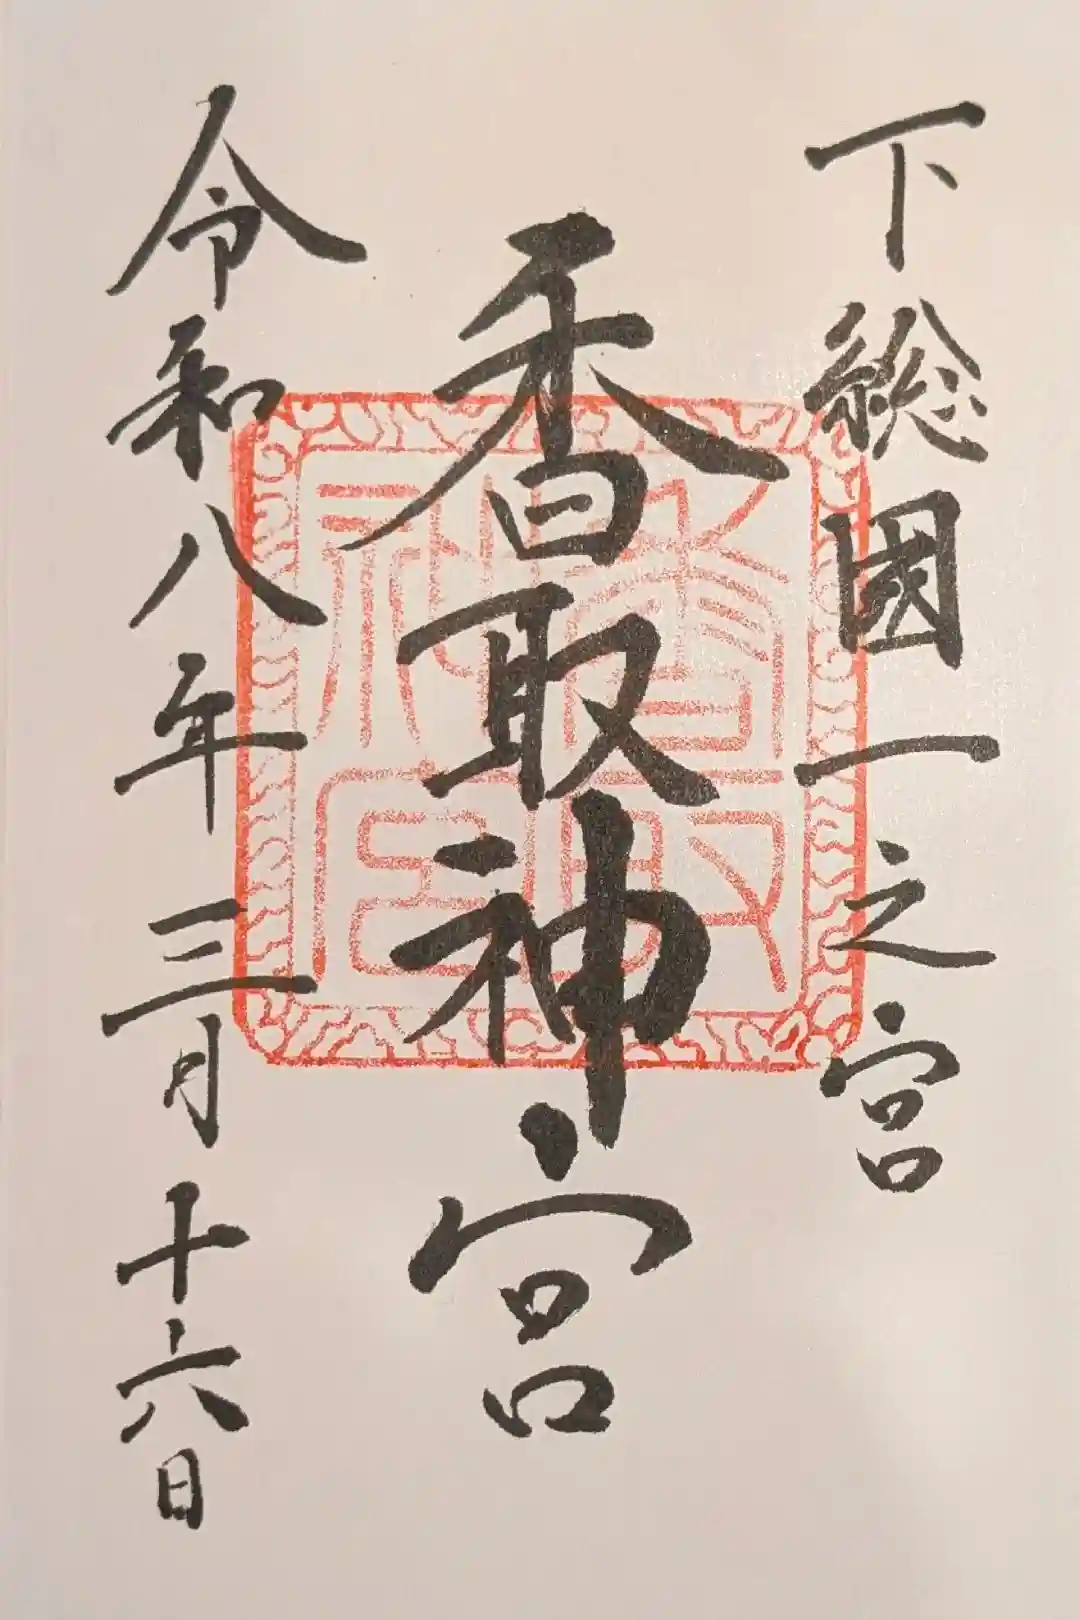 下総國一之宮
香取神宮
令和八年三月十六日
香取
神宮